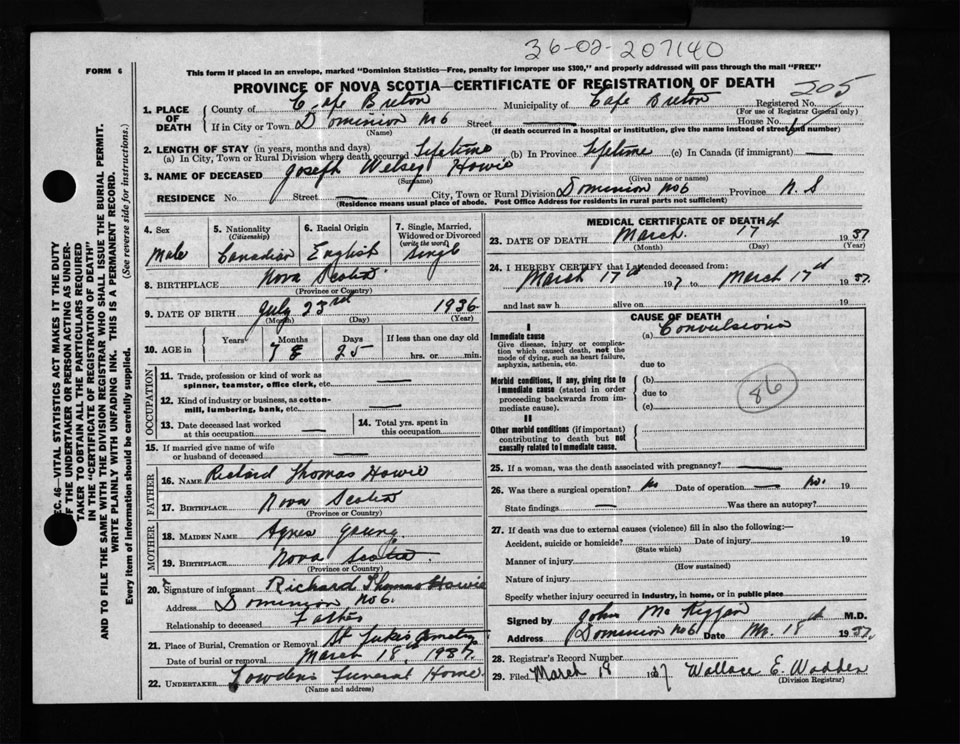 36-02-207140
FORM 6
This form if placed in an envelope, marked "Dominion Statistics—Free, penalty for improper use $300," and properly addressed will pass through the mail "FREE"
PROVINCE OF NOVA SCOTIA—CERTIFICATE OF REGISTRATION OF DEATH
205
SEC. 46—VITAL STATISTICS ACT MAKES IT THE DUTY
OF THE UNDERTAKER OR PERSON ACTING AS UNDER-
TAKER TO OBTAIN ALL THE PARTICULARS REQUIRED
IN THE "CERTIFICATE OF REGISTRATION OF DEATH"
AND TO FILE THE SAME WITH THE DIVISION REGISTRAR WHO SHALL ISSUE THE BURIAL PERMIT.
WRITE PLAINLY WITH UNFADING INK. THIS IS A PERMANENT RECORD.
Every item of information should be carefully supplied. (See reverse side for instructions.)
1. PLACE OF DEATH County of Cape Breton Municipality of Cape Breton Registered No.
(For use of Registrar General only)
If in City or Town Dominion No 6 Street House No.
(Name) (If death occurred in a hospital or institution, give the name instead of street and number)
2. LENGTH OF STAY (in years, months and days)
(a) In City, Town or Rural Division where death occurred Lifetime (b) In Province Lifetime (c) In Canada (if immigrant)
3. NAME OF DECEASED Joseph Welsey Howie
(Surname) (Given name or names)
RESIDENCE No. Street City, Town or Rural Division Dominion No 6 Province N.S
(Residence means usual place of abode. Post Office Address for residents in rural parts not sufficient)
4. Sex Male
5. Nationality (Citizenship) Canadian
6. Racial Origin English
7. Single, Married, Widowed or Divorced (write the word) Single
8. BIRTHPLACE Nova Scotia
(Province or Country)
9. DATE OF BIRTH July 23rd 1936
(Month) (Day) (Year)
10. AGE in Years Months 7 8 Days 25 If less than one day old
hrs. or min.
OCCUPATION
11. Trade, profession or kind of work as
spinner, teamster, office clerk, etc.
12. Kind of industry or business, as cotton-
mill, lumbering, bank, etc.
13. Date deceased last worked
at this occupation
14. Total yrs. spent in
this occupation
15. If married give name of wife
or husband of deceased
FATHER
16. NAME Richard Thomas Howie
17. BIRTHPLACE Nova Scotia
(Province or Country)
MOTHER
18. MAIDEN NAME Agnes Young
19. BIRTHPLACE Nova Scotia
(Province or Country)
20. Signature of informant Richard Thomas Howie
Address Dominion No 6.
Relationship to deceased Father
21. Place of Burial, Cremation or Removal St Lukes Cemetry
Date of burial or removal March 18th 1937.
22. UNDERTAKER Lowdens Funeral Home
(Name and address)
MEDICAL CERTIFICATE OF DEATH
23. DATE OF DEATH March 17th 1937
(Month) (Day) (Year)
24. I HEREBY CERTIFY that I attended deceased from:
March 17th 197 to March 17th 1937.
and last saw h alive on 19
CAUSE OF DEATH
I
Immediate cause
Give disease, injury or complica-
tion which caused death, not the
mode of dying, such as heart failure,
asphyxia, asthenia, etc.
(a) Convulsions
due to
Morbid conditions, if any, giving rise to
immediate cause (stated in order
proceeding backwards from im-
mediate cause).
(b)
due to
(c)
86
II
Other morbid conditions (if important)
contributing to death but not
causally related to immediate cause.
25. If a woman, was the death associated with pregnancy?
26. Was there a surgical operation? no Date of operation no. 19
State findings Was there an autopsy?
27. If death was due to external causes (violence) fill in also the following:—
Accident, suicide or homicide? Date of injury 19
(State which)
Manner of injury
(How sustained)
Nature of injury
Specify whether injury occurred in industry, in home, or in public place
Signed by John Mc Kiggan M.D.
Address Dominion No 6 Date Mr. 18th 1937.
28. Registrar's Record Number
29. Filed March 18 1937 Wallace E. Wadden
(Division Registrar)